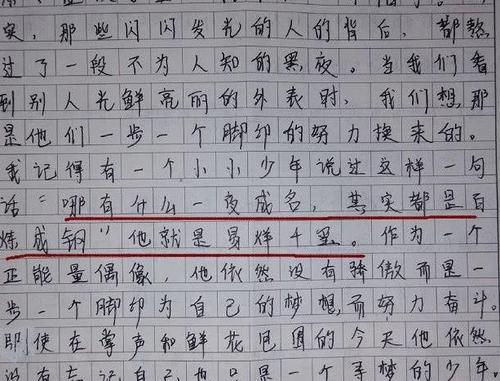 实，那些闪闪发光的人的背后，都熬
过了一段不为人知的黑夜。当我们看
到别人光鲜亮丽的外表时，我们想那
是他们一步一个脚印的努力换来的。
我记得有一个小小少年说过这样一句
话“哪有什么一夜成名，其实都是百
炼成钢”他就是易烊千玺。作为一个
正能量偶像，他依然没有骄傲而是一
步一个脚印为自己的梦想，而努力奋斗。
即使在掌声和鲜花包围的今天他依然
没有忘记自己，他只是一个寻梦的少年。